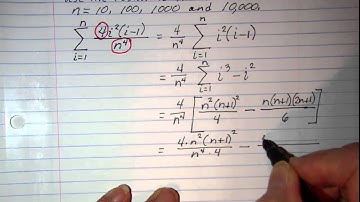 n = 10, 100, 1000 and 10,000.
∑_{i=1}^{n} 4i²(i-1)/n⁴ = 4/n⁴ ∑_{i=1}^{n} i²(i-1)
= 4/n⁴ ∑_{i=1}^{n} i³ - i²
= 4/n⁴ [ n²(n+1)²/4 - n(n+1)(2n+1)/6 ]
= 4·n²(n+1)²/n⁴·4 -